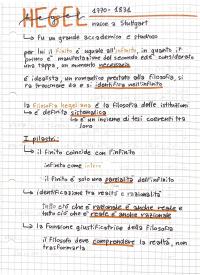 HEGEL
1770-1831
nasce a Stuttgart
↳ Fu un grande accademico e studioso
per lui il finito è uguale all'infinito, in quanto il
primo è manifestazione del secondo ed è considerato
una tappa, un momento necessario
è idealista, un romantico prestato alla filosofia, si
fa trascinare da e si identifica nell'infinito
La filosofia hegeliana è la filosofia delle istituzioni
↳ è definita sistematica
↳ è un insieme di tesi coerenti tra
loro
I pilastri:
↳ il finito coincide con l'infinito
infinito come intero
il finito è solo una parzialità dell'infinito
↳ identificazione tra realtà e razionalità
tutto ciò che è razionale è anche reale e
tutto ciò che è reale è anche razionale
↳ la funzione giustificatrice della filosofia
il filosofo deve comprendere la realtà, non
trasformarla